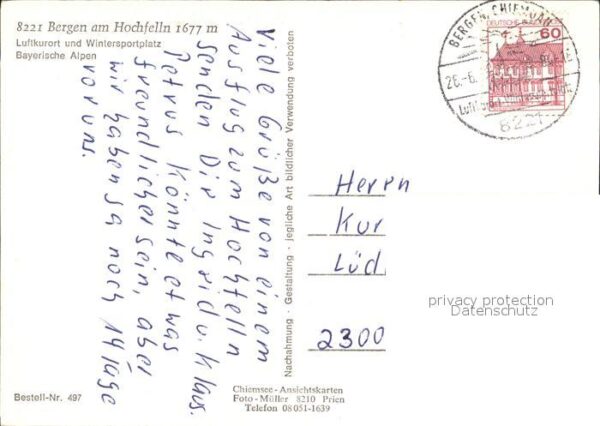 8221 Bergen am Hochfelln 1677 m
Luftkurort und Wintersportplatz
Bayerische Alpen
Viele Grüße von einem
Ausflug zum Hochfelln
senden Dir Ingrid u. Klaus.
Petrus könnte etwas
freundlicher sein, aber
wir haben ja noch 14 Tage
vor uns.
Nachahmung · Gestaltung · jegliche Art bildlicher Verwendung verboten
BERGEN, CHIEMGAU
26.-6.
8221
DEUTSCHE BUNDESPOST
60
Herrn
Kur
Lüd
2300
privacy protection
Datenschutz
Bestell-Nr. 497
Chiemsee-Ansichtskarten
Foto-Müller 8210 Prien
Telefon 08051-1639